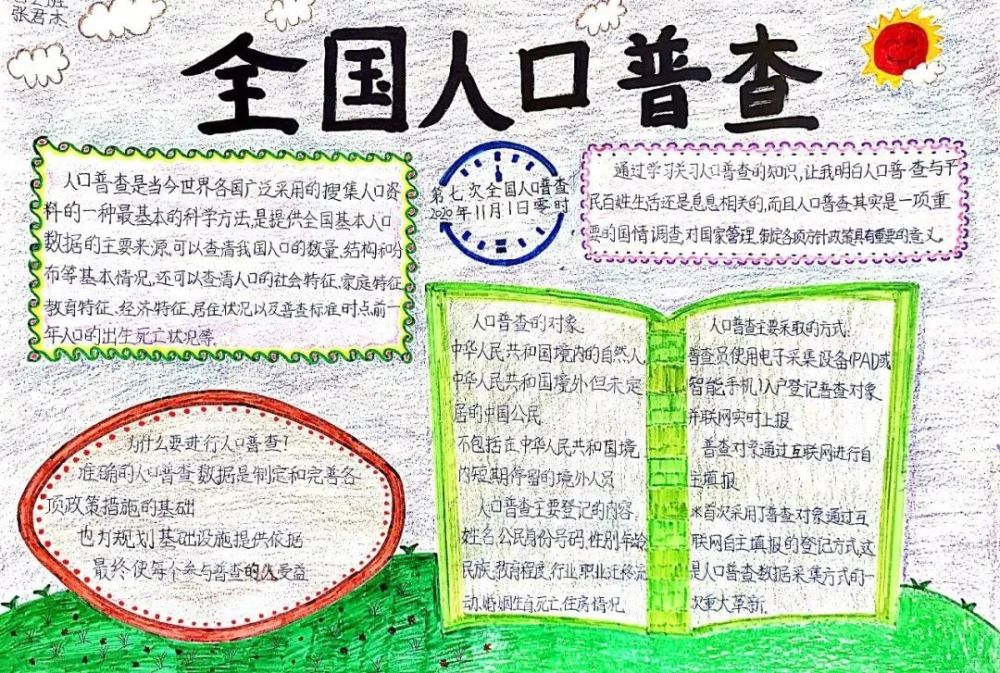 张君杰
全国人口普查
人口普查是当今世界各国广泛采用的搜集人口资
料的一种最基本的科学方法,是提供全国基本人口
数据的主要来源,可以查清我国人口的数量,结构和分
布等基本情况,还可以查清人口的社会特征,家庭特征
教育特征、经济特征,居住状况以及普查标准时点前一
年人口的出生死亡状况等.
第七次全国人口普查
2020年11月1日零时
通过学习关习人口普查的知识,让我明白人口普查与平
民百姓生活还是息息相关的,而且人口普查其实是一项重
要的国情调查,对国家管理,制定各项方针政策具有重要的意义。
为什么要进行人口普查?
准确的人口普查数据是制定和完善各
项政策措施的基础
也为规划基础设施提供依据
最终使每个参与普查的人受益
人口普查的对象
中华人民共和国境内的自然人
中华人民共和国境外但未定
居的中国公民
不包括在中华人民共和国境
内短期停留的境外人员
人口普查主要登记的内容,
姓名,公民身份号码,性别,年龄
民族,教育程度,行业,职业,迁移流
动,婚姻生育,死亡,住房情况
人口普查主要采取的方式:
普查员使用电子采集设备(PAD或
智能手机)入户登记普查对象
并联网实时上报
普查对象通过互联网进行自
主填报
首次采用了普查对象通过互
联网自主填报的登记方式这
是人口普查数据采集方式的一
次重大革新.